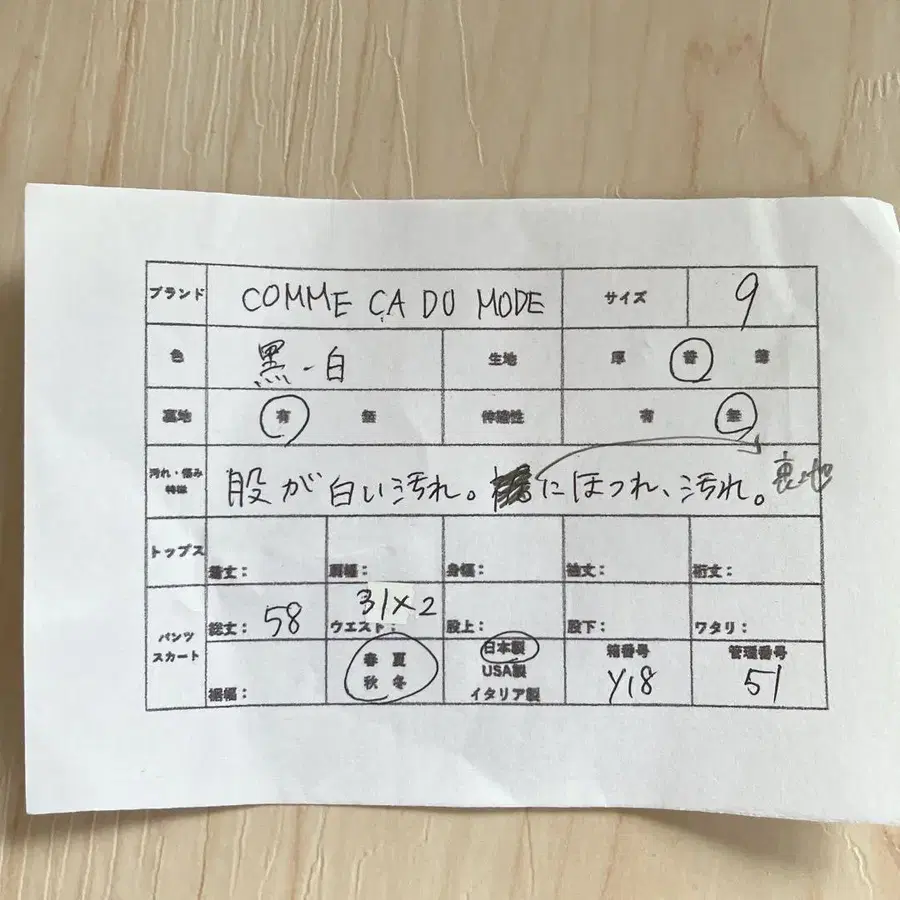 ブランド COMME ÇA DU MODE サイズ 9
色 黒・白 生地 厚 普 薄
裏地 有 無 伸縮性 有 無
汚れ・傷み 特徴 股が白い汚れ。にほつれ、汚れ。裏地
トップス 着丈: 肩幅: 身幅: 袖丈: 裄丈:
パンツ スカート 総丈: 58 ウエスト: 31×2 股上: 股下: ワタリ:
裾幅: 春 夏 秋 冬 日本製 USA製 イタリア製 箱番号 Y18 管理番号 51